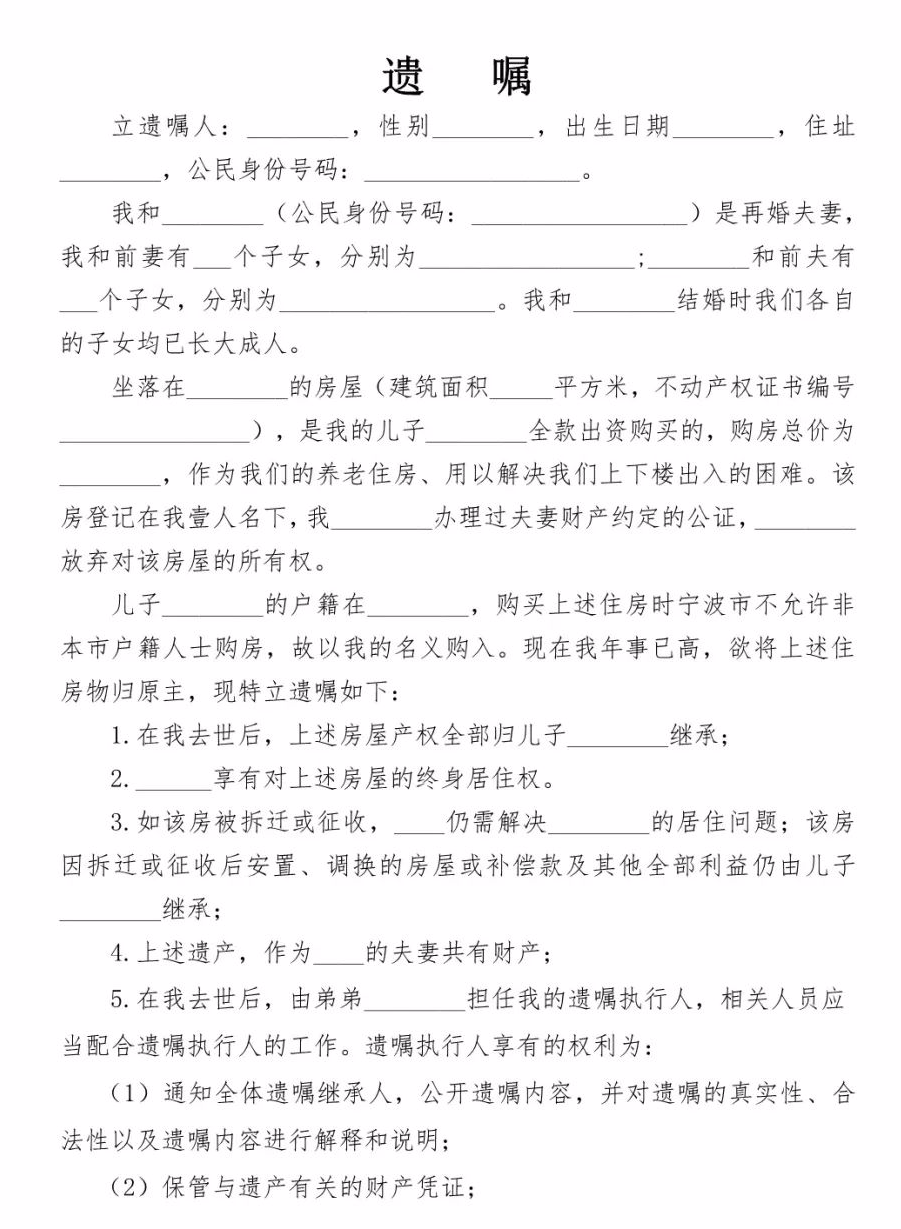 遗 嘱
立遗嘱人：________，性别________，出生日期________，住址
________，公民身份号码：_________________。
我和________（公民身份号码：_________________）是再婚夫妻，
我和前妻有___个子女，分别为_________________;________和前夫有
___个子女，分别为_________________。我和________结婚时我们各自
的子女均已长大成人。
坐落在________的房屋（建筑面积_____平方米，不动产权证书编号
_______________），是我的儿子________全款出资购买的，购房总价为
________，作为我们的养老住房、用以解决我们上下楼出入的困难。该
房登记在我壹人名下，我________办理过夫妻财产约定的公证，________
放弃对该房屋的所有权。
儿子________的户籍在________，购买上述住房时宁波市不允许非
本市户籍人士购房，故以我的名义购入。现在我年事已高，欲将上述住
房物归原主，现特立遗嘱如下：
1.在我去世后，上述房屋产权全部归儿子________继承；
2.______享有对上述房屋的终身居住权。
3.如该房被拆迁或征收，____仍需解决________的居住问题；该房
因拆迁或征收后安置、调换的房屋或补偿款及其他全部利益仍由儿子
________继承；
4.上述遗产，作为____的夫妻共有财产；
5.在我去世后，由弟弟________担任我的遗嘱执行人，相关人员应
当配合遗嘱执行人的工作。遗嘱执行人享有的权利为：
（1）通知全体遗嘱继承人，公开遗嘱内容，并对遗嘱的真实性、合
法性以及遗嘱内容进行解释和说明；
（2）保管与遗产有关的财产凭证；